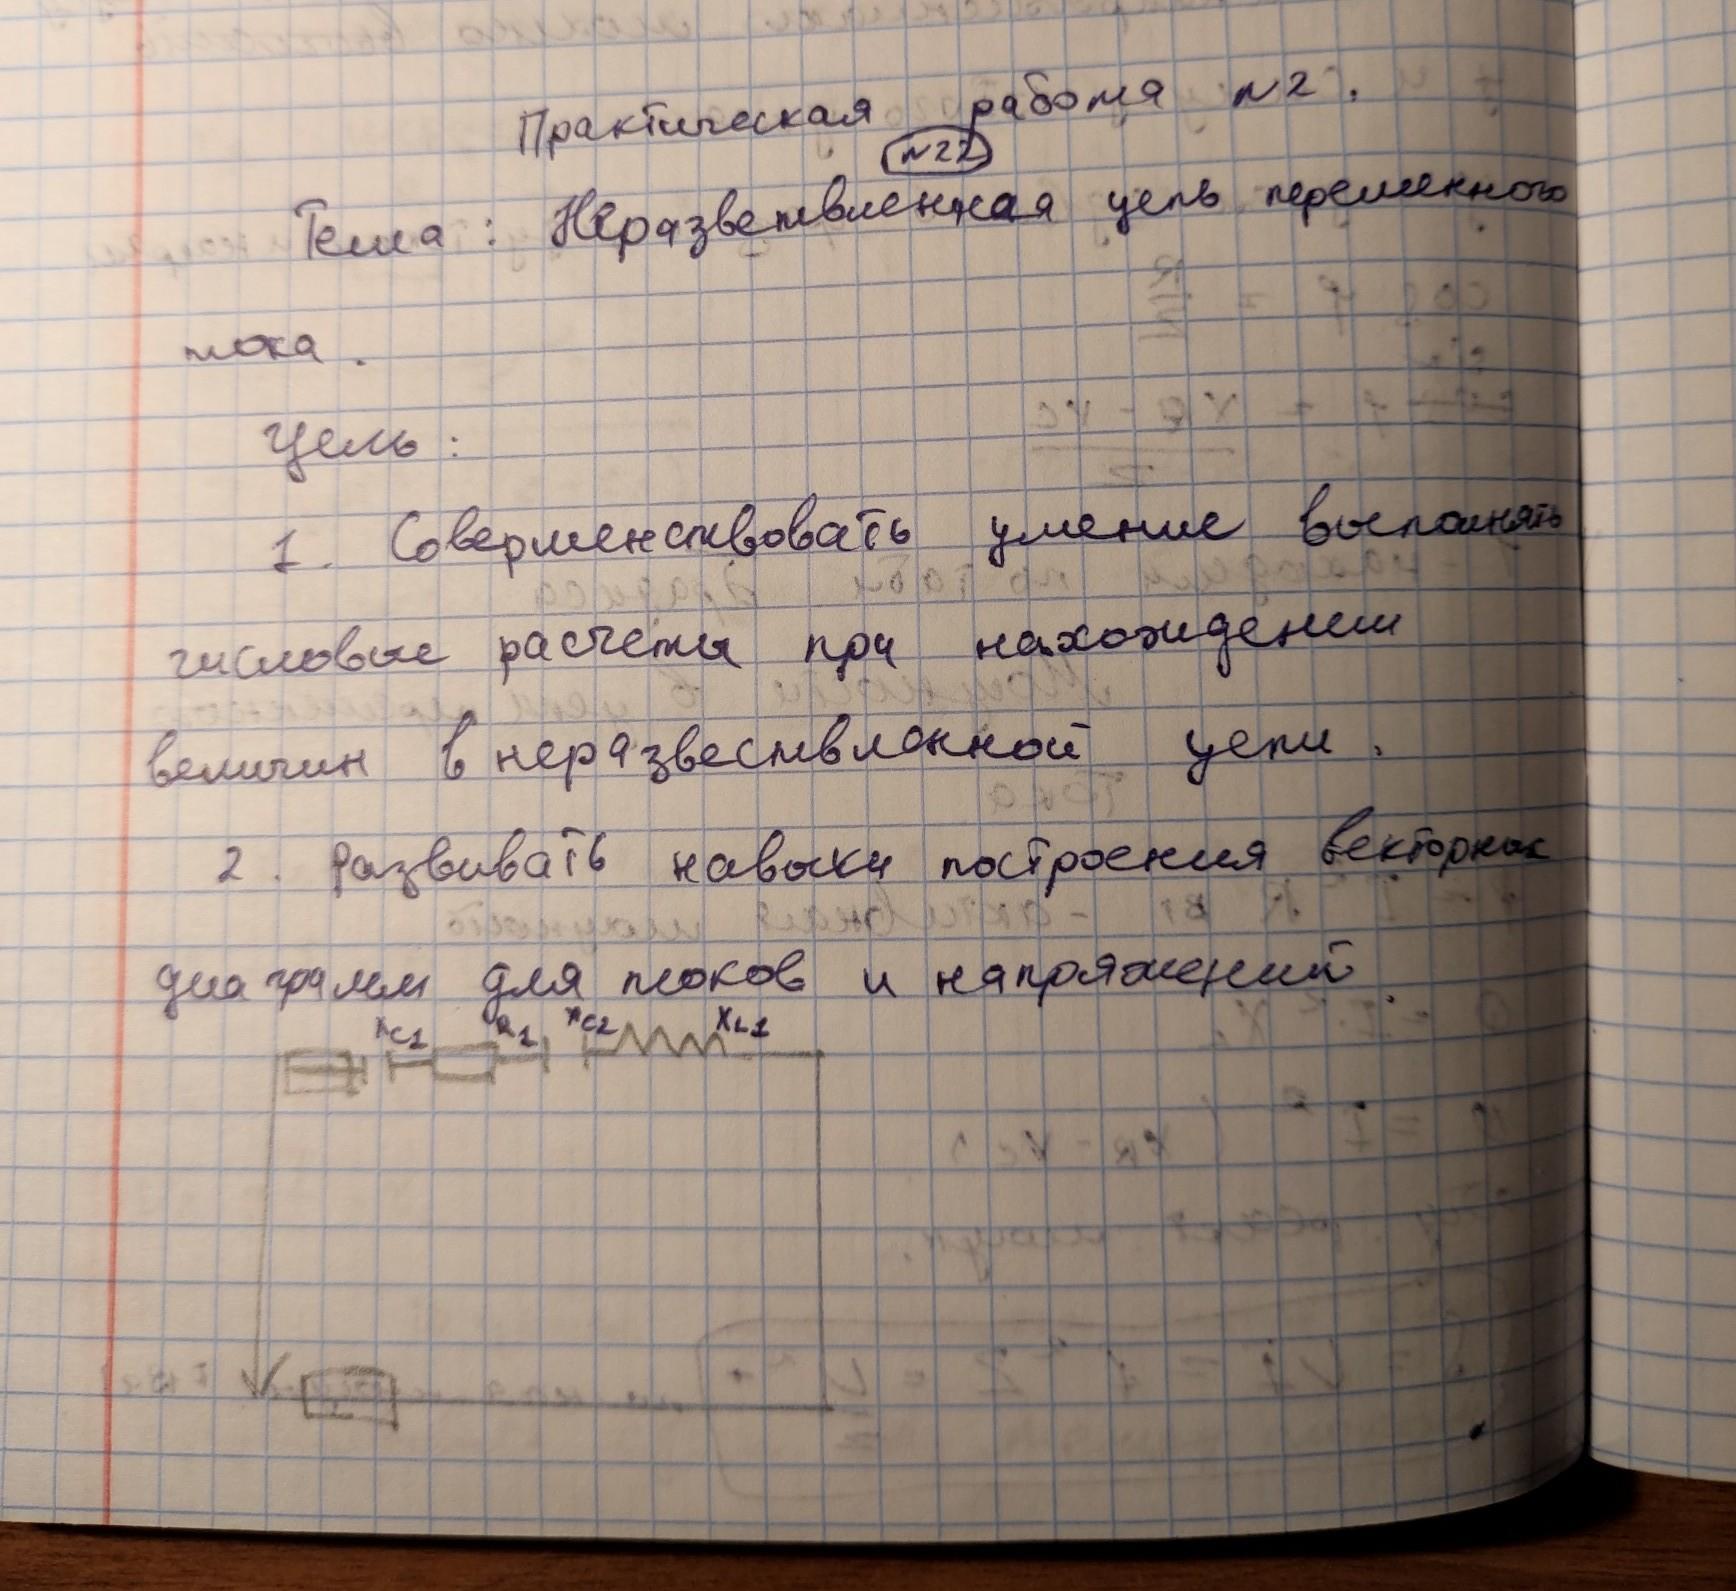 Практическая работа №2.
№22
Тема: Неразветвленная цепь переменного
тока.
Цель:
1. Совершенствовать умение выполнять
числовые расчеты при нахождении
величин в неразвествленной цепи.
2. Развивать навыки построения векторных
диаграмм для токов и напряжений
XC1 R1 XC2 XL1